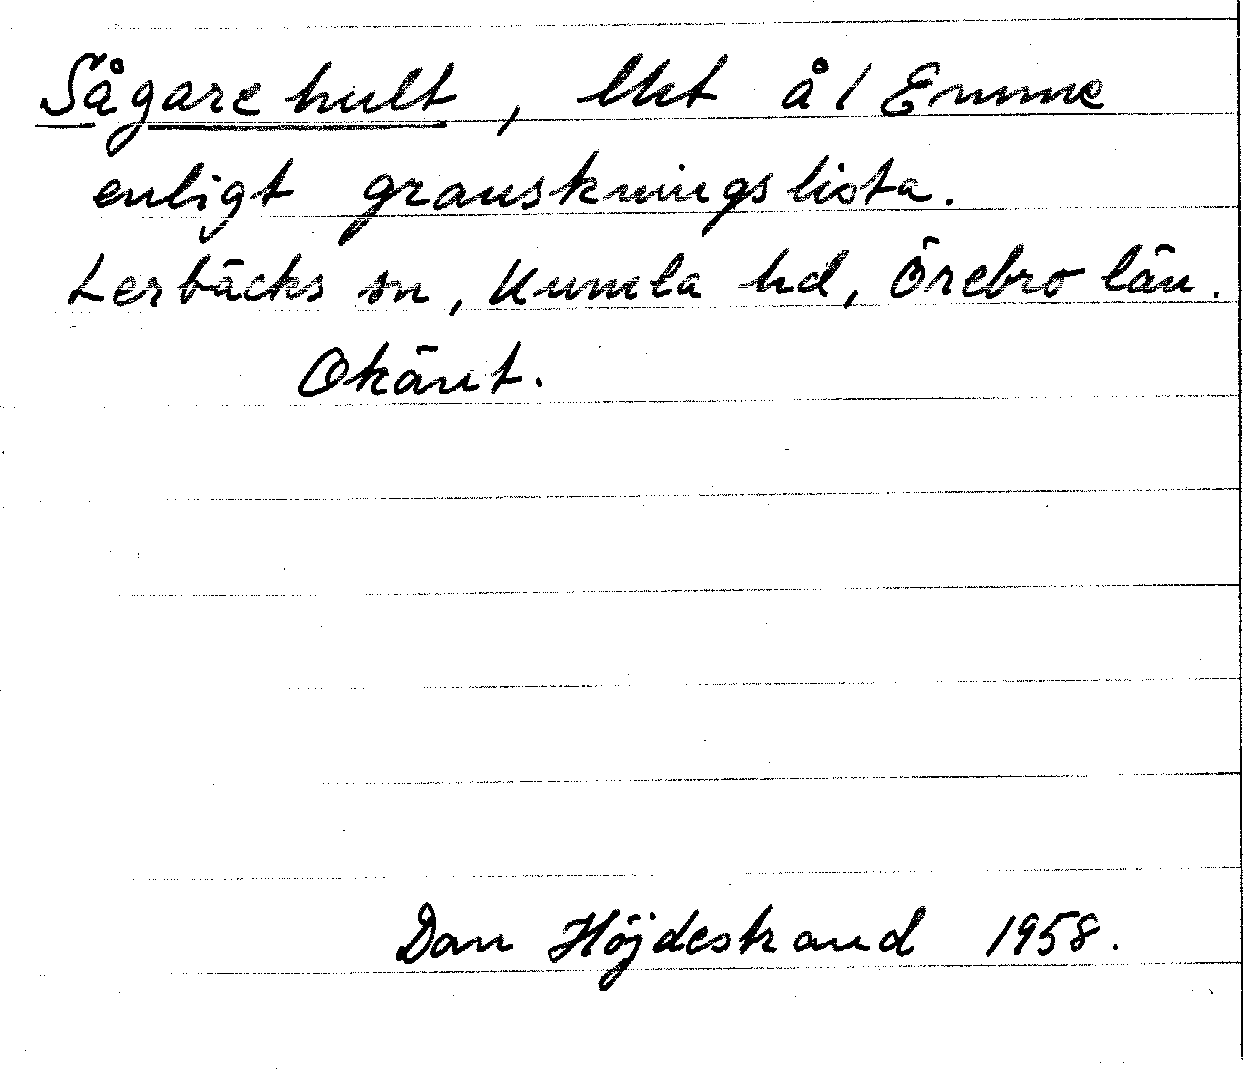 Sågarehult, lht å/ Emme
enligt granskningslista.
Lerbäcks sn, Kumla hd, Örebro län.
Okänt.
Dan Höjdestrand 1958.